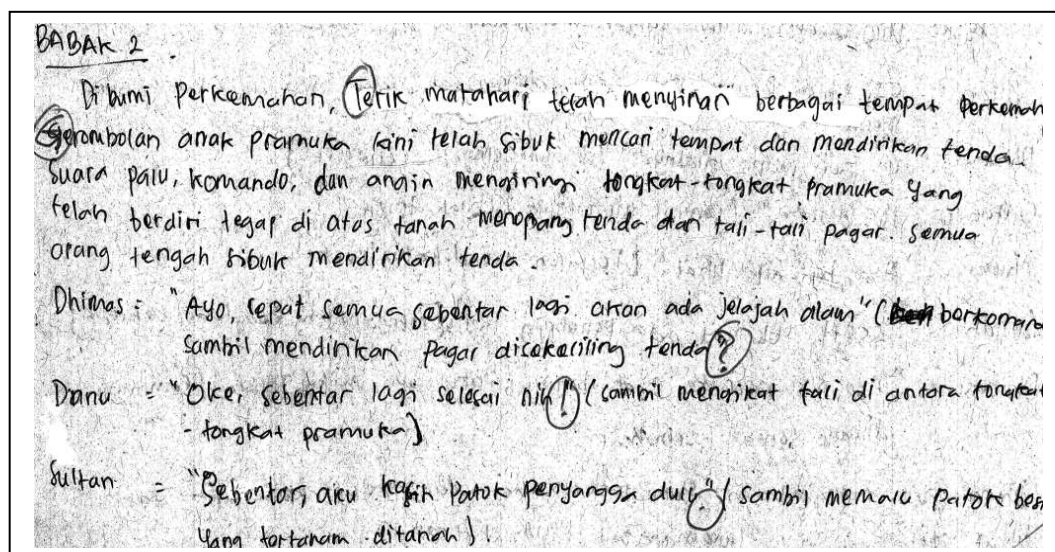 BABAK 2
Di bumi Perkemahan, Terik matahari telah menyinari berbagai tempat perkemah
Gerombolan anak pramuka kini telah sibuk mencari tempat dan mendirikan tenda.
Suara palu, komando, dan angin mengiringi tongkat-tongkat pramuka yang
telah berdiri tegap di atas tanah menopang tenda dan tali-tali pagar. Semua
orang tengah sibuk mendirikan tenda.
Dhimas = "Ayo, cepat semua sebentar lagi akan ada jelajah alam" (berkoman
sambil mendirikan pagar disekeciling tenda?
Danu = "Oke, sebentar lagi selesai nih!" (sambil mengikat tali di antara tongkat
- tongkat pramuka)
Sultan = "Sebentar, aku kasih Patok penyangga dulu." (sambil memalu patok besi
yang tertanam ditanah)